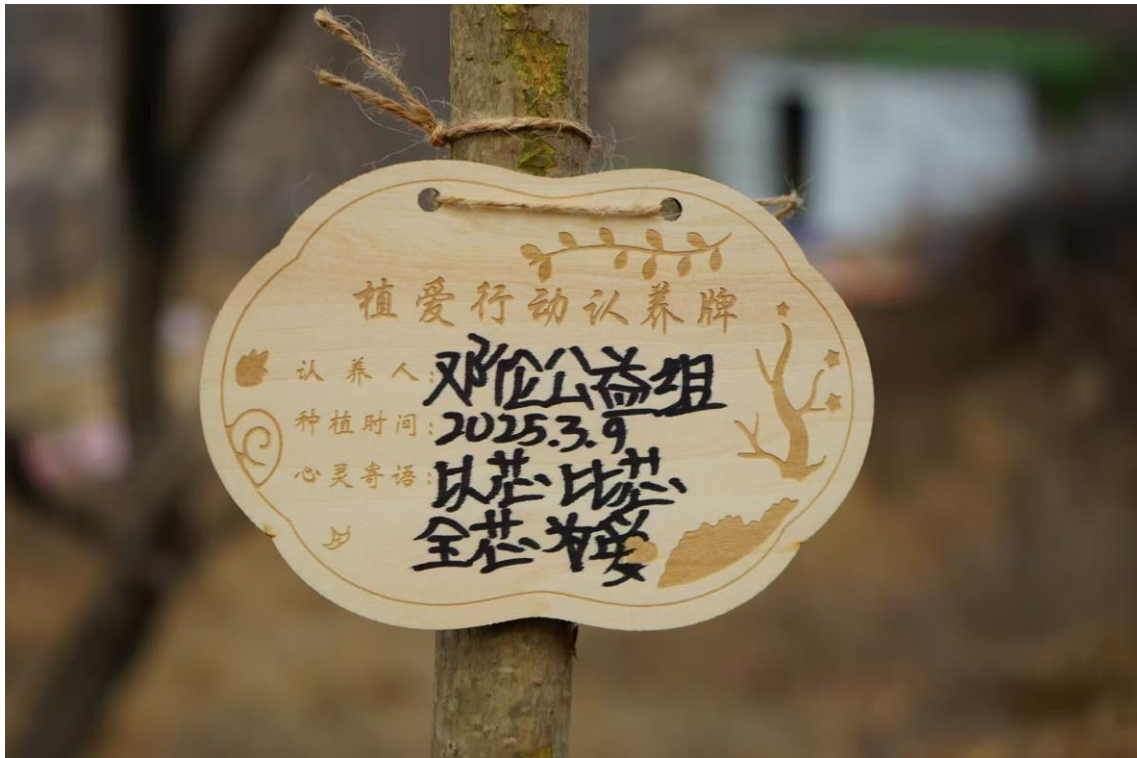 植爱行动认养牌
认养人:邓伦公益组
种植时间:2025.3.9
心灵寄语:以芯比芯
全芯为爱